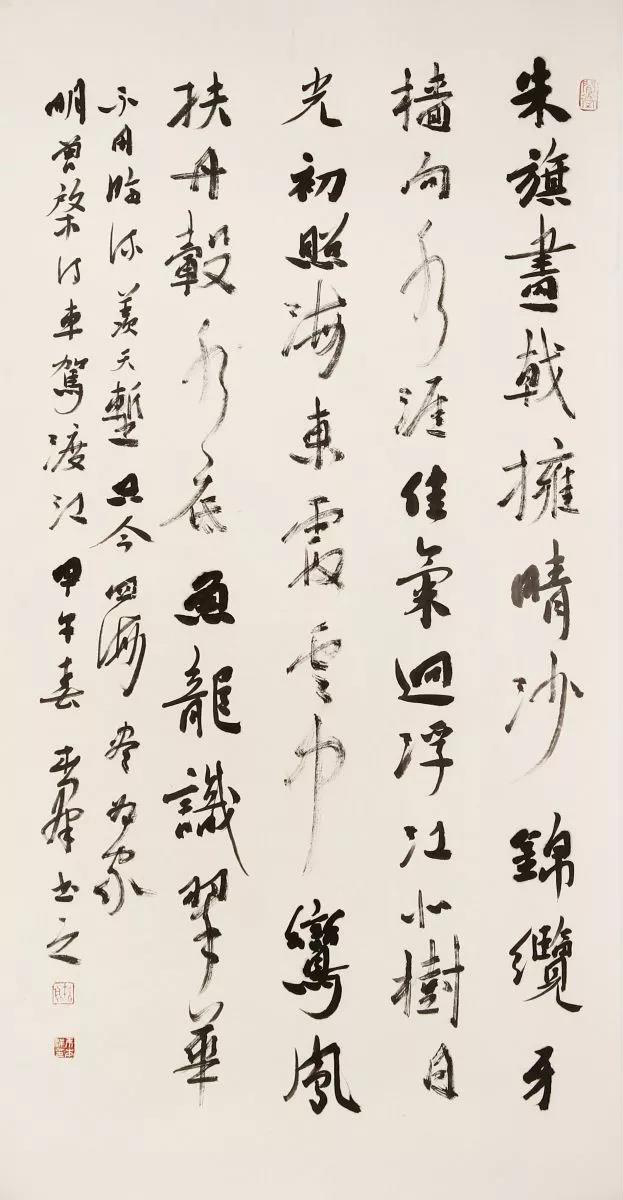 朱旗畫戟擁晴沙錦纜牙
檣向水涯佳氣迥浮江北樹日
光初照海東霞雲中鸞鳳
扶丹轂水底魚龍識翠華
不用臨流羨天塹只今四海盡為家
明曾棨詩車駕渡江甲午春書之